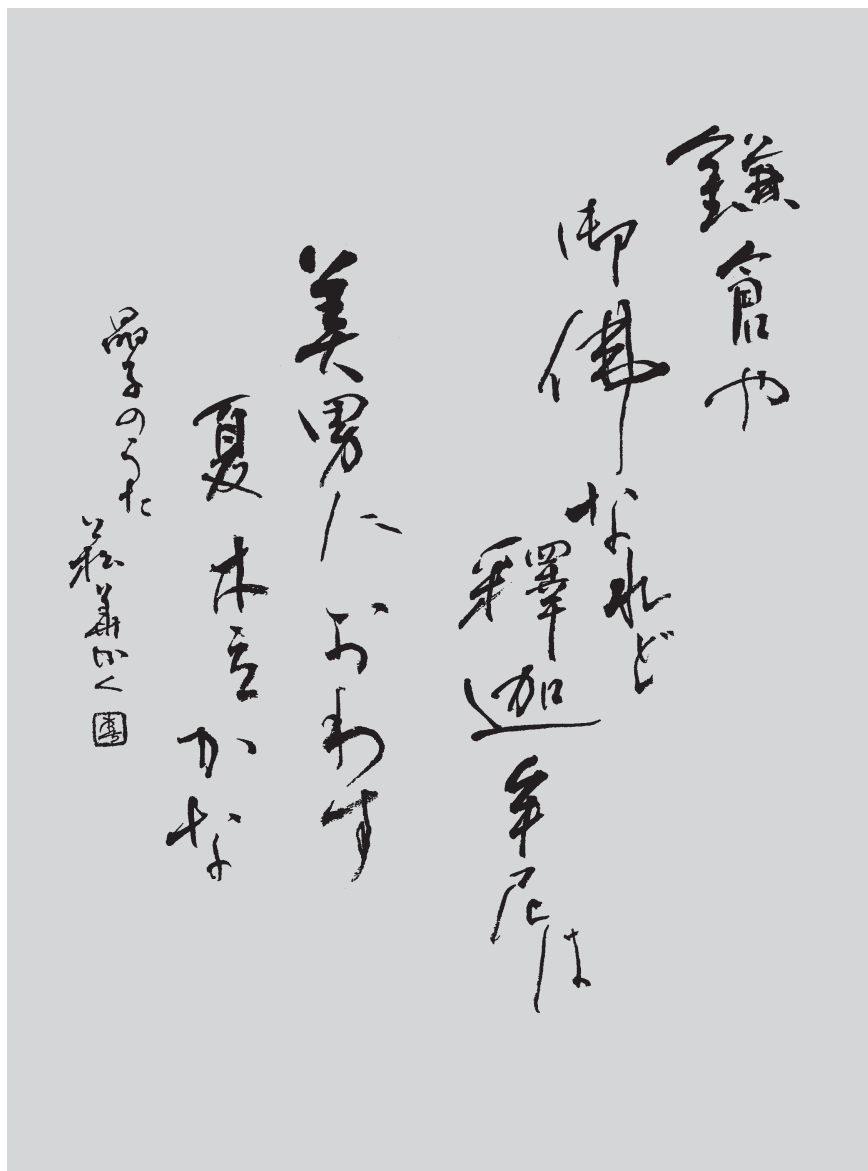 鎌倉や
御佛なれど
釋迦牟尼は
美男におわす
夏木立かな
晶子のうた
華かく